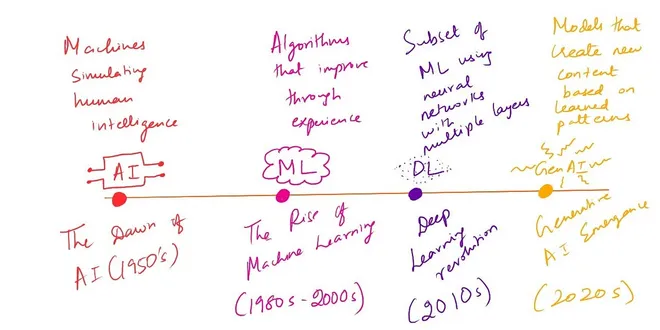 Machines
Simulating
human
intelligence
AI
The Dawn of
AI (1950's)
Algorithms
that improve
through
experience
ML
The Rise of
Machine Learning
(1980s-2000s)
Subset of
ML using
neural
networks
with
multiple layers
DL
Deep
Learning
revolution
(2010s)
Models that
create new
content
based on
learned
patterns
Gen AI
Generative
AI Emergence
(2020s)